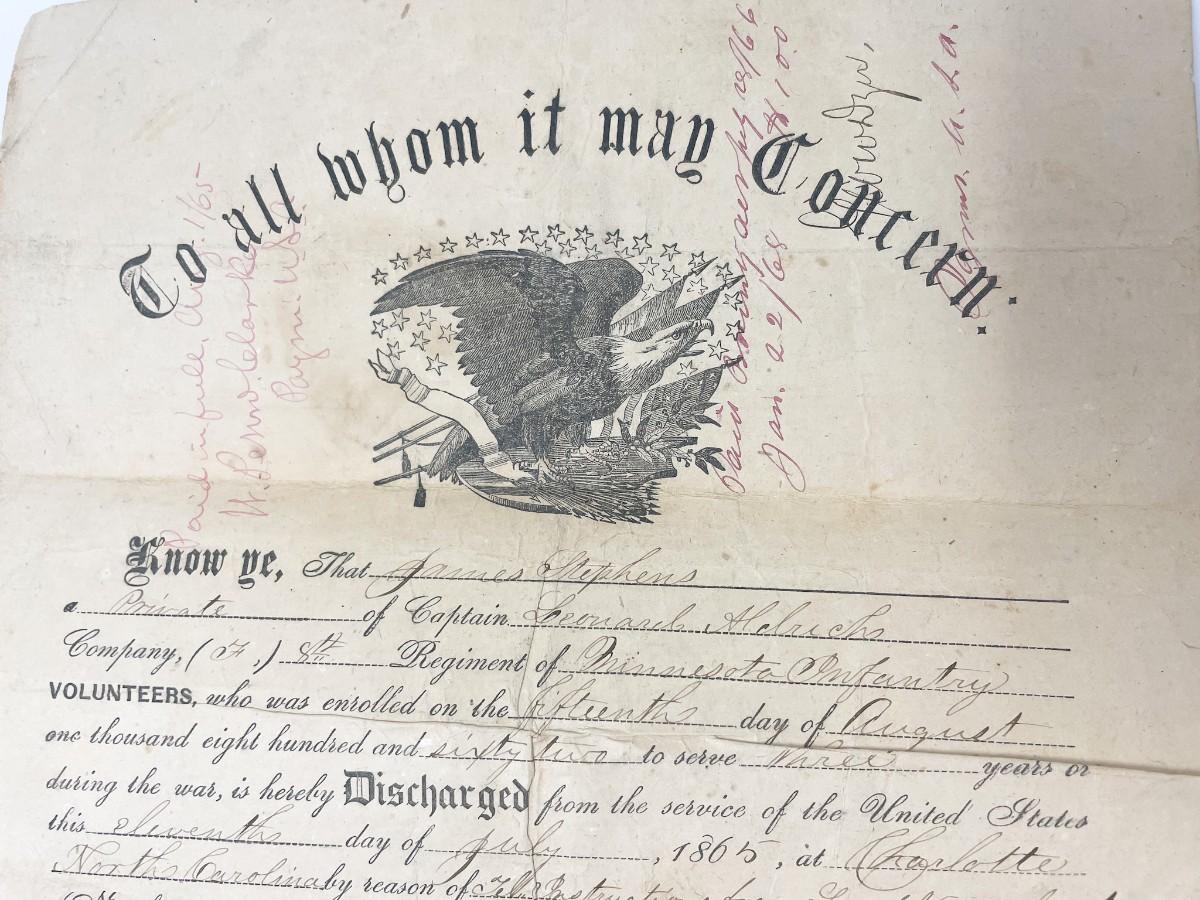 To all whom it may Concern:
Paid in full. Aug. 1/65
Paym. U.S.A.
Paid
Jan. 22/68 $100
U.S.A.
Know ye, That James Stephens
a Private of Captain Leonard Aldrichs
Company, (F,) 8th Regiment of Minnesota Infantry
VOLUNTEERS, who was enrolled on the fifteenth day of August
one thousand eight hundred and sixty two to serve three years or
during the war, is hereby Discharged from the service of the United States
this eleventh day of July, 1865, at Charlotte
North Carolina by reason of Tel. Instructions